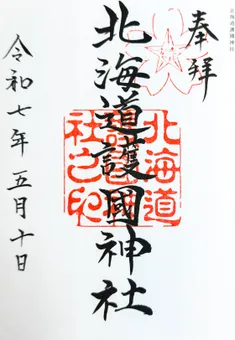 北海道護國神社
奉拜
北海道護國神社
北海道
護國神
社之印
令和七年五月十日